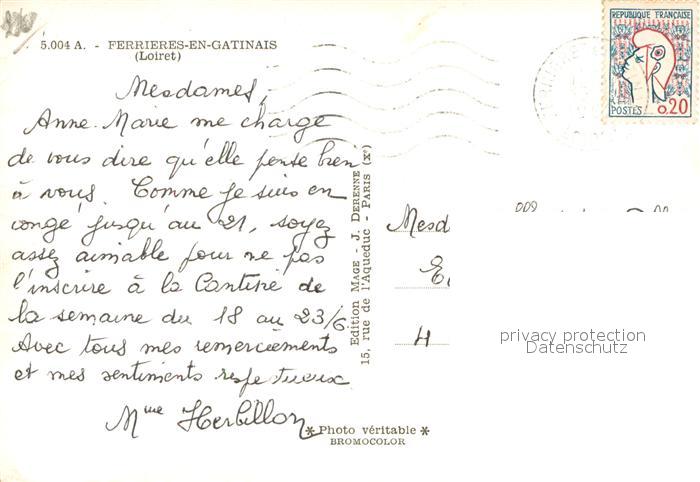 5.004 A. - FERRIERES-EN-GATINAIS
(Loiret)
Mesdames,
Anne-Marie me charge
de vous dire qu'elle pense bien
à vous. Comme je suis en
congé jusqu'au 21, soyez
assez aimable pour ne pas
l'inscrire à la Cantine de
la semaine du 18 au 23/6.
Avec tous mes remerciements
et mes sentiments respectueux
Mme Herbillon
Edition MAGE - J. DERENNE
15, rue de l'Aqueduc - PARIS (Xe)
*Photo véritable*
BROMOCOLOR
REPUBLIQUE FRANÇAISE
POSTES 0,20
Mesd
privacy protection
Datenschutz